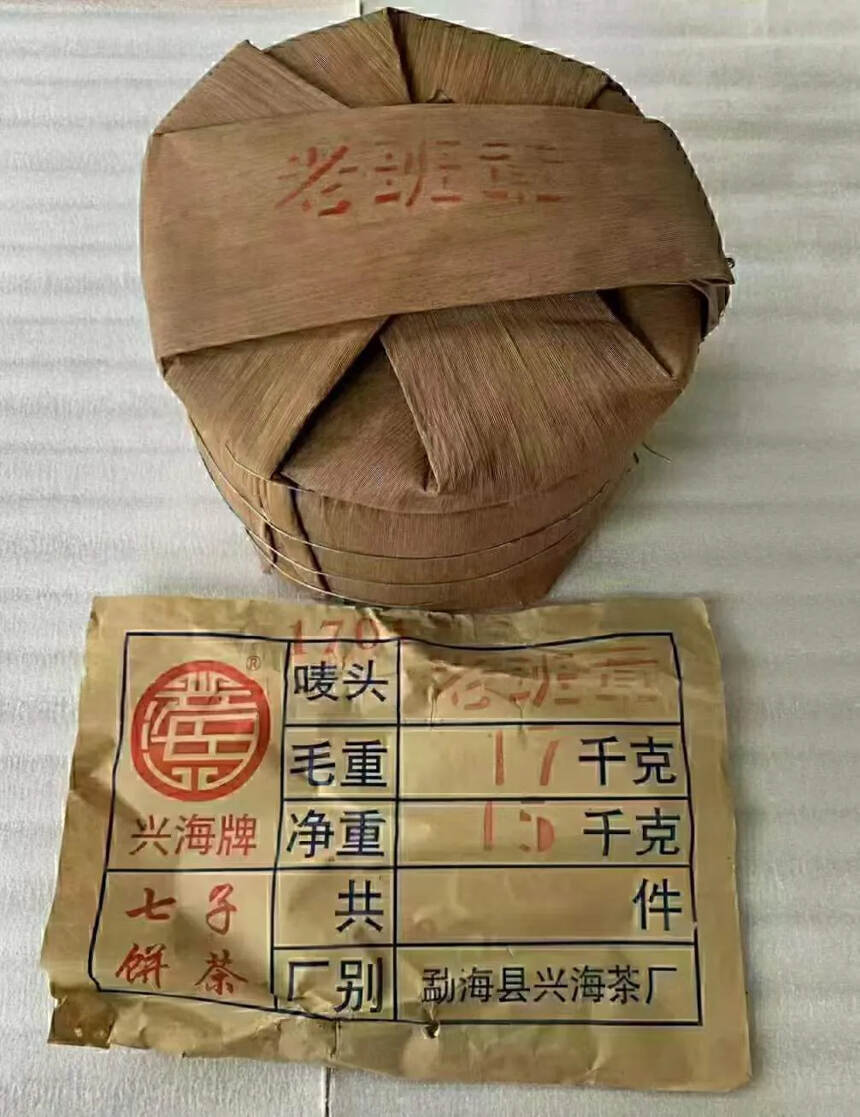 老班章
1701
®
唛头 老班章
毛重 17 千克
兴海牌
净重 15 千克
七子
饼茶
共 件
厂别 勐海县兴海茶厂